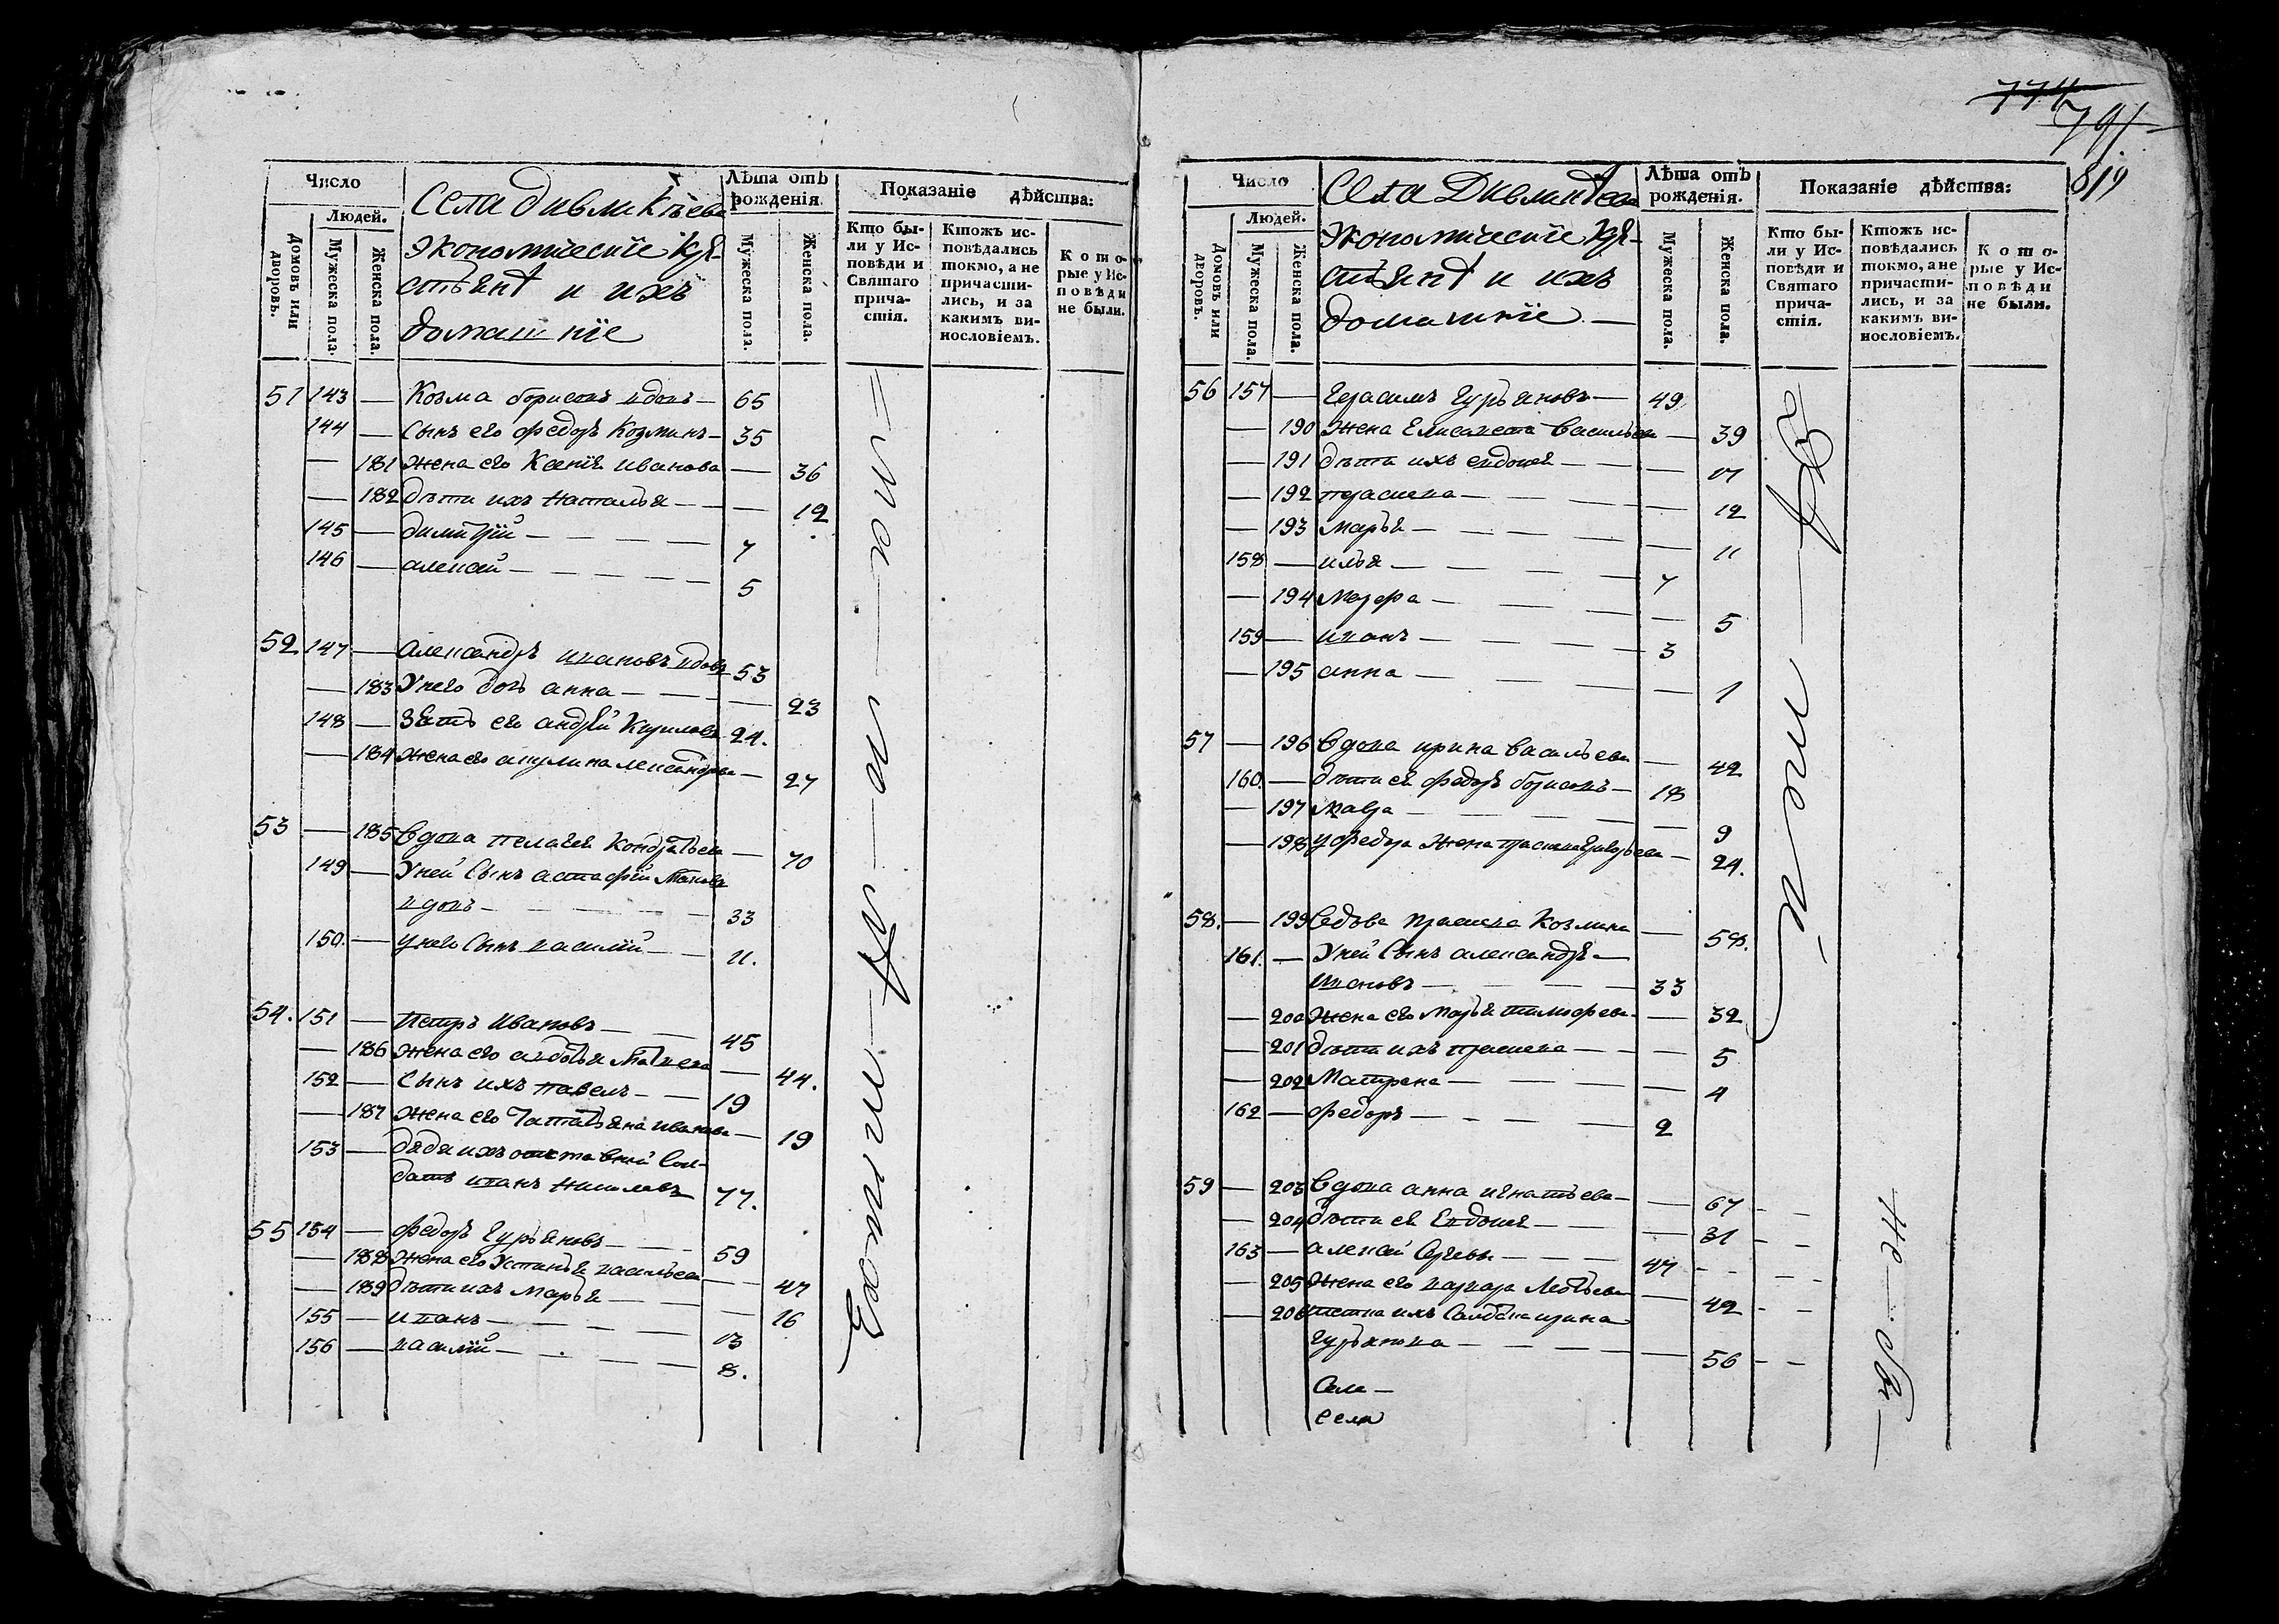 Число
Людей.
Домовъ или дворовъ.
Мужеска пола.
Женска пола.
Села дивликѣева
экономическїе кре-
стьянѣ и ихъ
домашнїе
Лѣта отъ рожденїя.
Мужеска пола.
Женска пола.
Показанїе дѣйства:
Кто бы-
ли у Ис-
повѣди и
Святаго
прича-
стїя.
Ктожъ ис-
повѣдались
токмо, а не
причасти-
лись, и за
какимъ ви-
нословїемъ.
Кото-
рые у Ис-
повѣди
не были.
51 143 — Козма борисовъ вдовъ — 65
144 — Сынъ его федоръ Козминъ — 35
— 181 жена его Ксенїя иванова — 36
— 182 дѣти ихъ наталья — — 12
145 — димитрїй — — — — 7
146 — алексѣй — — — — 5
52 147 — Александръ ивановъ вдовъ 53
— 183 У него дочь анна — — 23
148 — Зять его андрей Кириловъ 24.
— 184 жена его акулина лександрова — 27
53 — 185 Вдова пелагея Кондратьева — 70
149 — У ней Сынъ астафїй
вдовъ — — — — 33
150. — у него Сынъ василїй — — 11.
54. 151 — Петръ Ивановъ — — 45
— 186 жена его авдотья Матвеева — 44.
152 — Сынъ ихъ павелъ — — 19
— 187 жена его Татьяна иванова — 19
153 — дядя ихъ отставной Сол-
датъ иванъ 77.
55 154 — федоръ Гурьяновъ — — 59
— 188 жена его Устинья васильева — 47
— 189 дѣти ихъ марья — — 16
155 — иванъ — — — — 13
156 — василїй — — — — 8.
Бытии — у — а — ю — и =
774
791
819
Число
Людей.
Домовъ или дворовъ.
Мужеска пола.
Женска пола.
Села Дивликѣева
экономическїе кре-
стьянѣ и ихъ
домашнїе —
Лѣта отъ рожденїя.
Мужеска пола.
Женска пола.
Показанїе дѣйства:
Кто бы-
ли у Ис-
повѣди и
Святаго
прича-
стїя.
Ктожъ ис-
повѣдались
токмо, а не
причасти-
лись, и за
какимъ ви-
нословїемъ.
Кото-
рые у Ис-
повѣди
не были.
56 157 — Герасимъ Гурьяновъ — 49
— 190 жена Елисавета Васильева — 39
— 191 дѣти ихъ евдокея — — — 17
— 192 праскева — — — — 12
— 193 марья — — — — 11
158 — илья — — — — 7
— 194 Марфа — — — — 5
159 — иванъ — — — — 3
— 195 анна — — — — 1
57 — 196 Вдова ирина васильева — 42
160. — дѣти ея федоръ борисовъ — 18
— 197 мавра — — — — 9
— 198 у федора жена праскева григорьева — 24.
58. — 199 Вдова Праскева Козмина — 58.
161. — У ней Сынъ александръ —
ивановъ — — — — 33
— 200 жена его марья тимофеева — 32
— 201 дѣти ихъ праскева — — 5
— 202 Матрена — — — 4
162 — федоръ — — — — 2
59 — 203 Вдова анна игнатьева — — 67 — —
— 204 дѣти ея Евдокея — — — 31 — —
163 — алексѣй Сергеевъ — — 47 — — — —
— 205 жена его варвара — 42 — —
— 206 тетка ихъ Салдатка ирина
Гурьянова — — — — 56 — —
Села —
села